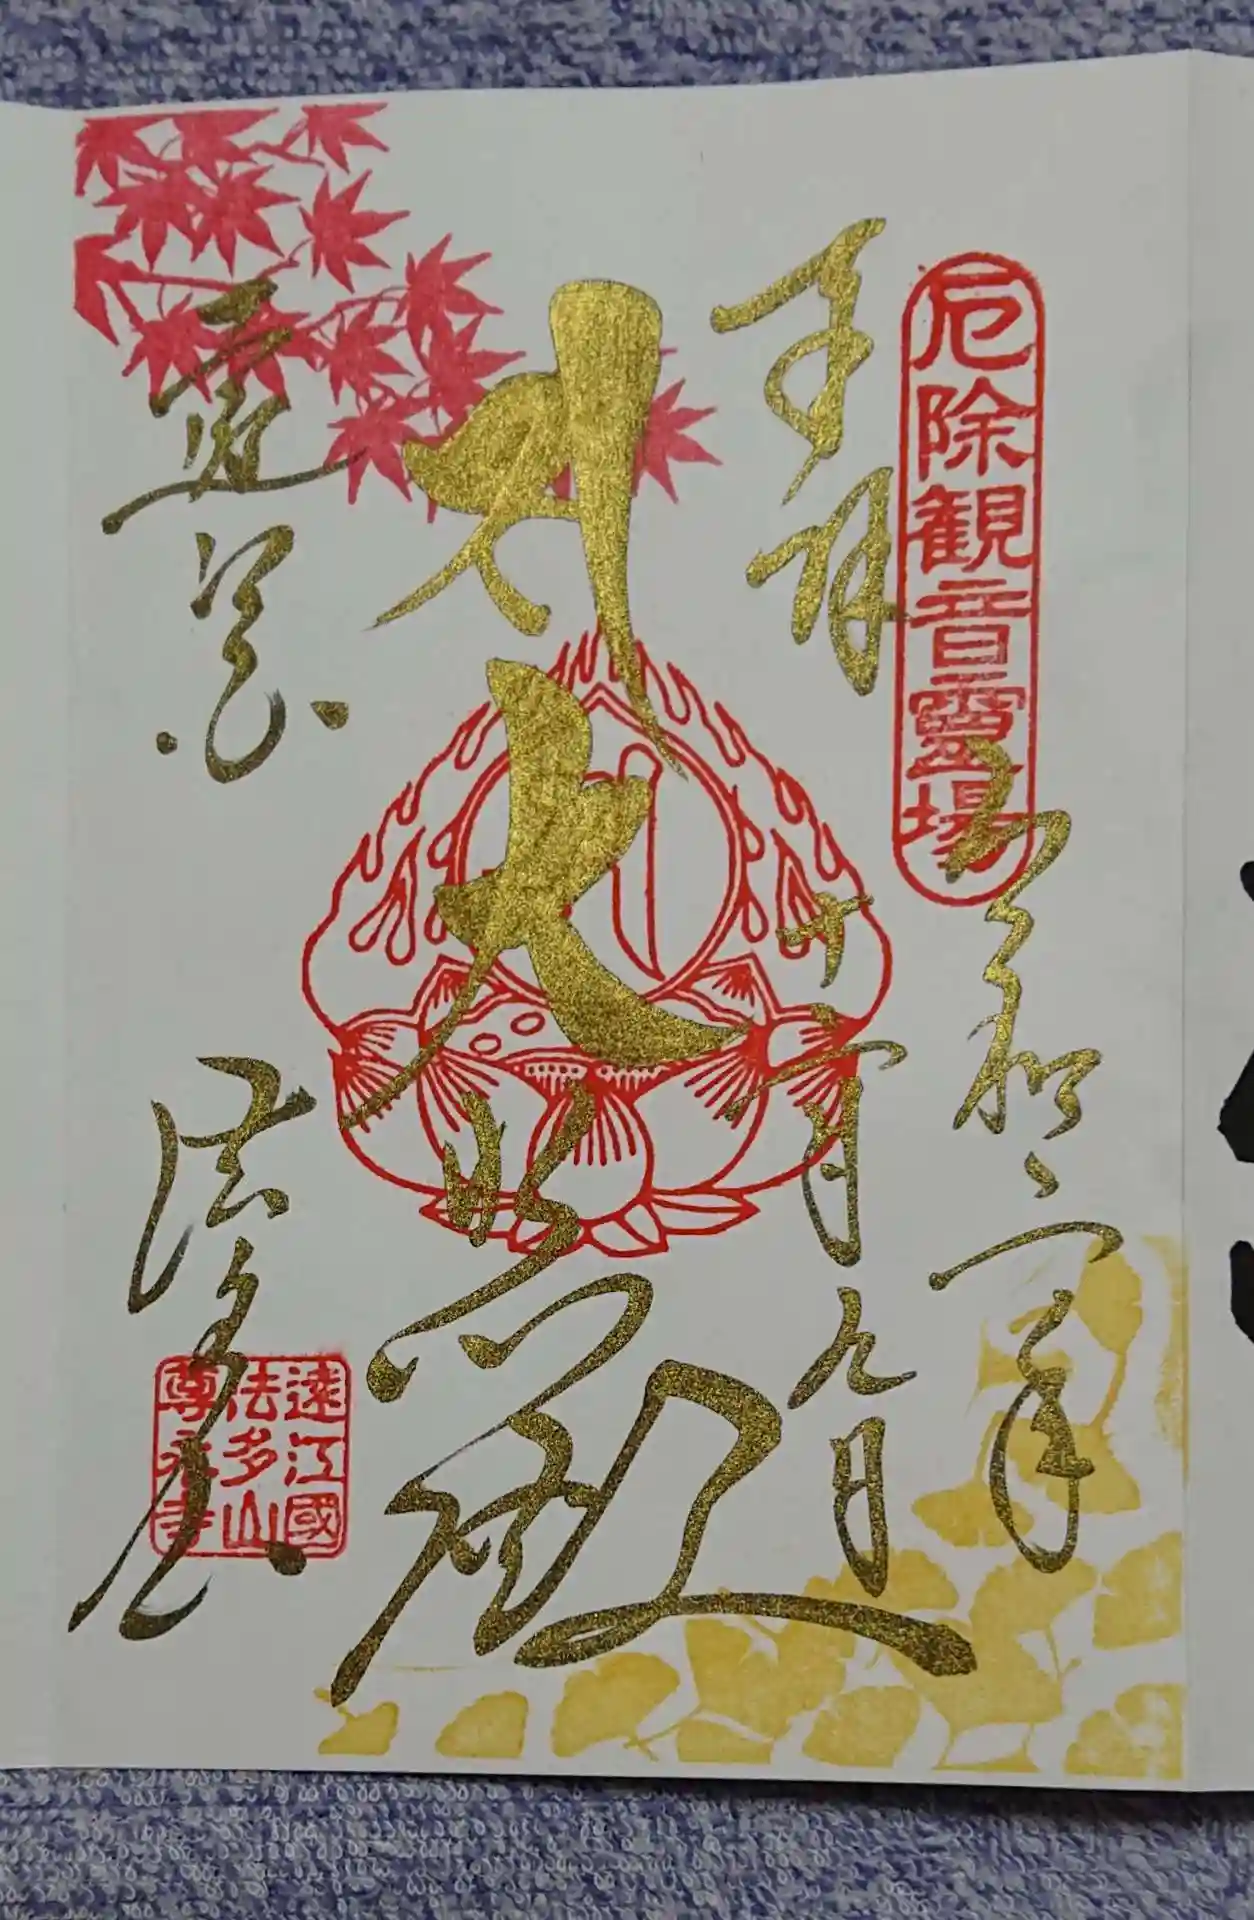 厄除観音霊場
奉拝
令和二年
十一月九日
大悲殿
法多山
遠江國
法多山
尊永寺